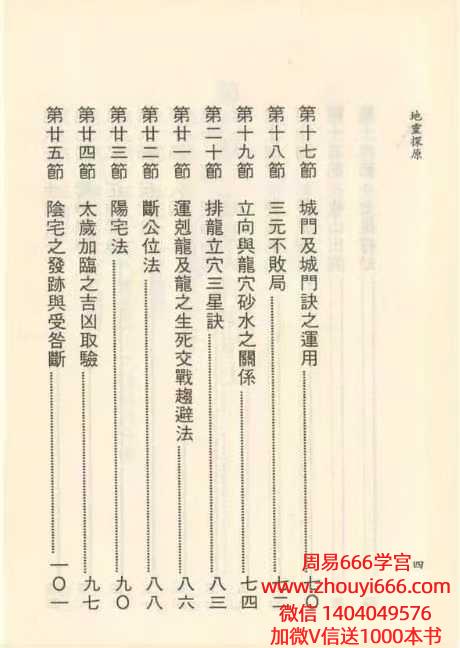 地靈探原
四
第十七節 城門及城門訣之運用 七〇
第十八節 三元不敗局 七二
第十九節 立向與龍穴砂水之關係 七四
第二十節 排龍立穴三星訣 八三
第廿一節 運剋龍及龍之生死交戰趨避法 八六
第廿二節 斷公位法 八八
第廿三節 陽宅法 九〇
第廿四節 太歲加臨之吉凶取驗 九七
第廿五節 陰宅之發跡與受咎斷 一〇一
周易666学宫
www.zhouyi666.com
微信 1404049576
加微V信送1000本书